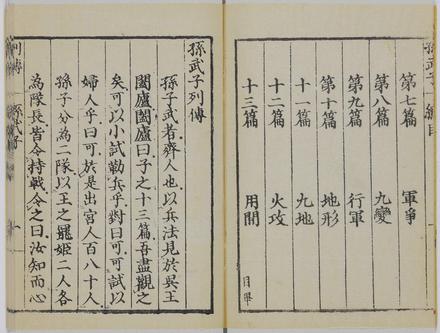 孫武子
第七篇 軍爭
第八篇 九變
第九篇 行軍
第十篇 地形
十一篇 九地
十二篇 火攻
十三篇 用間
目畢
孫武子列傳
孫子武者齊人也以兵法見於吳王
闔廬闔廬曰子之十三篇吾盡觀之
矣可以小試勒兵乎對曰可可試以
婦人乎曰可於是出宮人百八十人
孫子分為二隊以王之寵姬二人各
為隊長皆令持戟令之曰汝知而心
列傳 孫武子